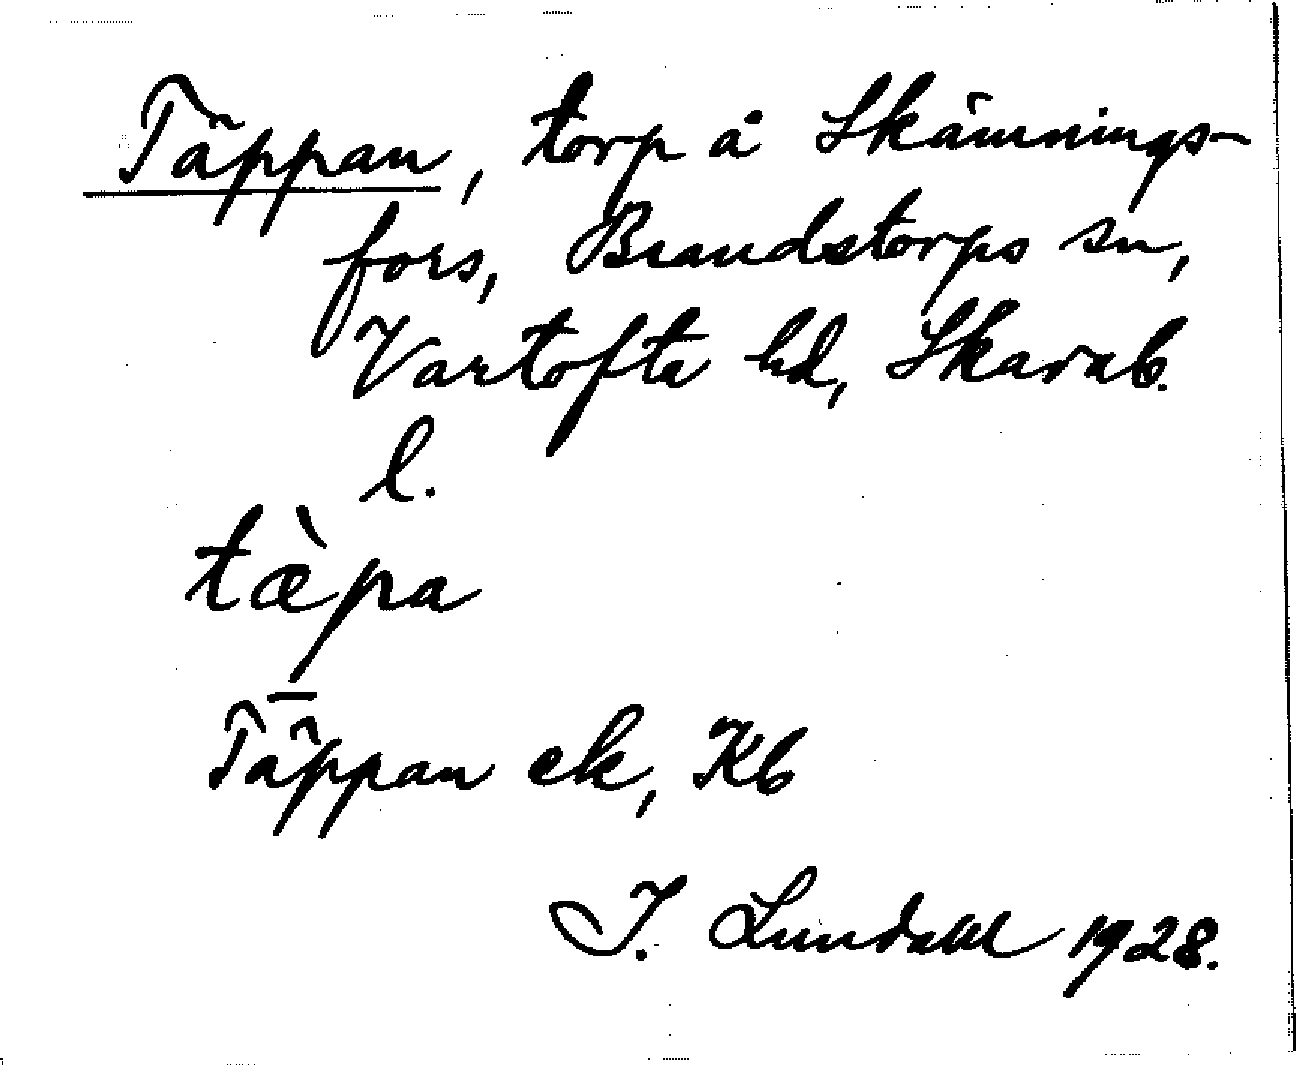 Täppan, torp å Skämnings-
fors, Brandstorps sn,
Vartofta hd, Skarab.
l.
tæ̀pa
Täppan ek, Kb
I. Lundahl 1928.